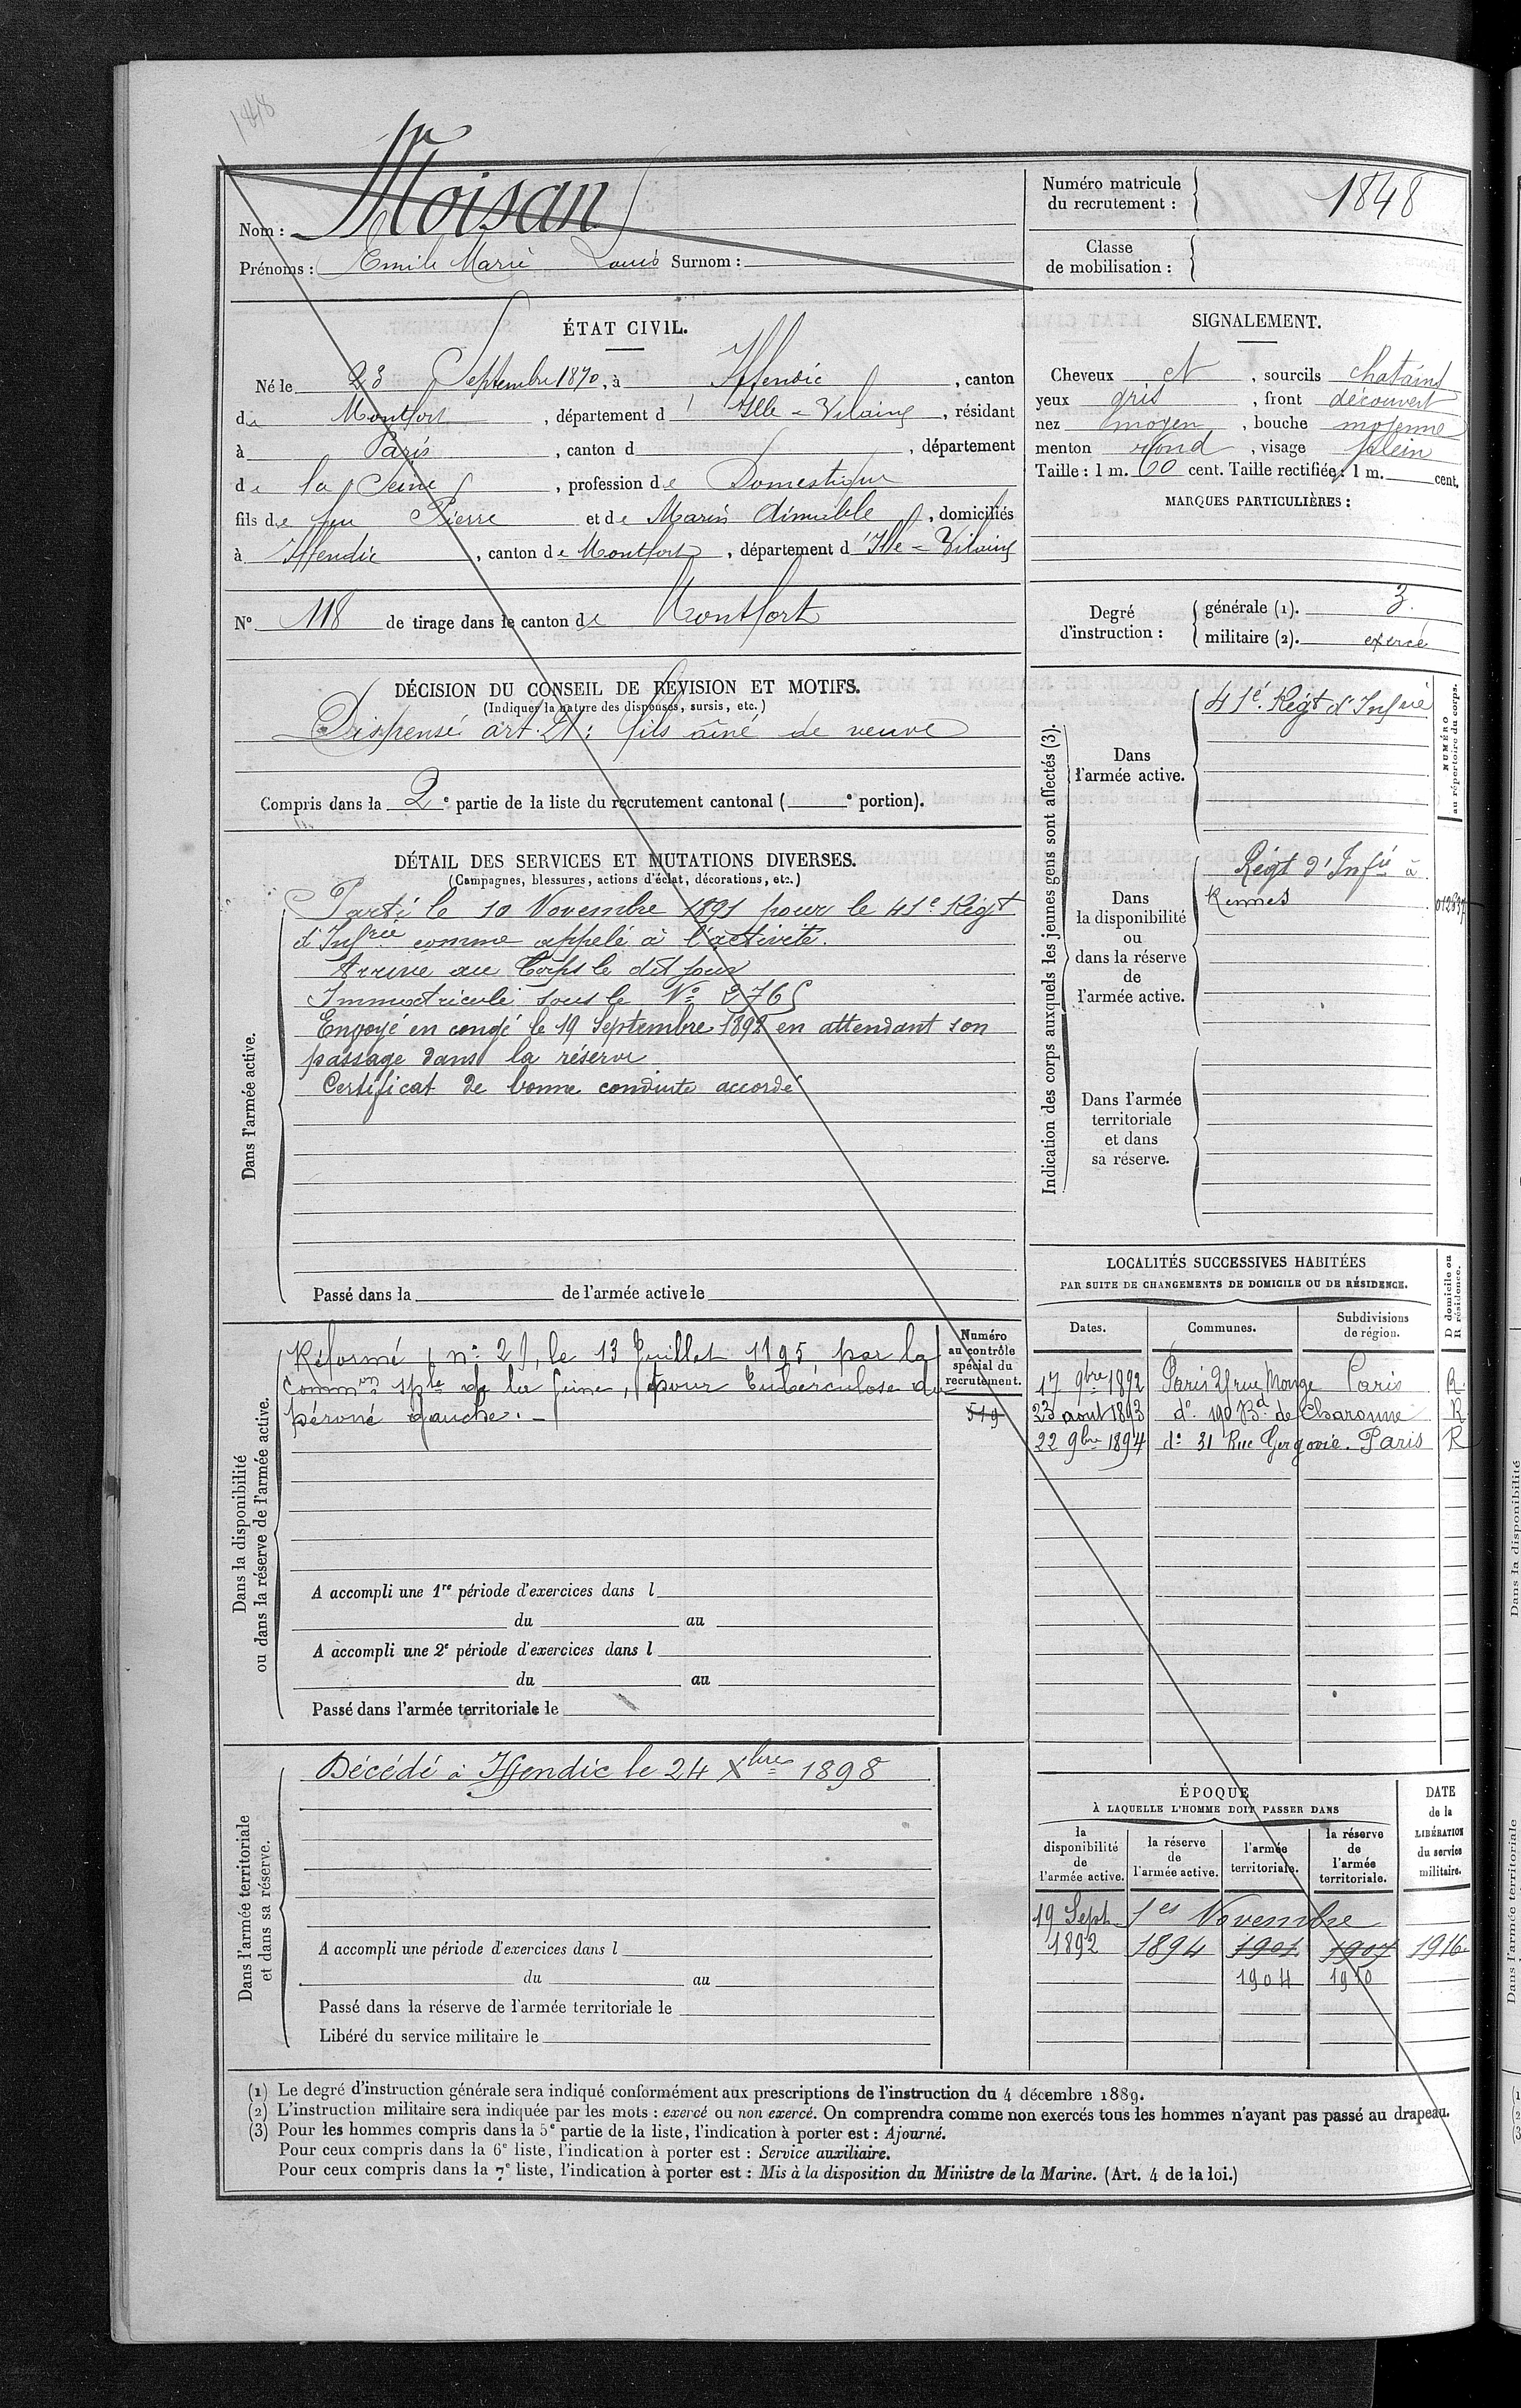 1848
Nom : Moisan
Prénoms : Emile Marie Louis Surnom :
Numéro matricule du recrutement : 1848
Classe de mobilisation :
ÉTAT CIVIL.
Né le 23 Septembre 1870, à Iffendic, canton
de Montfort, département d'Ille-Vilaine, résidant
à Paris, canton d , département
de la Seine, profession de Domestique
fils de feu Pierre et de Marie , domiciliés
à Iffendic, canton de Montfort, département d'Ille-Vilaine
N° 118 de tirage dans le canton de Montfort
SIGNALEMENT.
Cheveux et , sourcils chatains
yeux gris , front découvert
nez moyen , bouche moyenne
menton rond , visage plein
Taille : 1 m. 60 cent. Taille rectifiée : 1 m. cent.
MARQUES PARTICULIÈRES :
Degré d'instruction : générale (1). 3.
militaire (2). exercé
DÉCISION DU CONSEIL DE REVISION ET MOTIFS.
(Indiquer la nature des dispenses, sursis, etc.)
Dispensé art. 21 : fils aîné de veuve
Compris dans la 2e partie de la liste du recrutement cantonal ( e portion).
DÉTAIL DES SERVICES ET MUTATIONS DIVERSES.
(Campagnes, blessures, actions d'éclat, décorations, etc.)
Dans l'armée active.
Parti le 10 Novembre 1891 pour le 41e Régt
d'Infrie comme appelé à l'activité.
Arrivé au Corps le dit jour
Immatriculé sous le N° 2765
Envoyé en congé le 19 Septembre 1892 en attendant son
passage dans la réserve
Certificat de bonne conduite accordé
Passé dans la de l'armée active le
Indication des corps auxquels les jeunes gens sont affectés (3).
NUMÉRO au répertoire du corps.
Dans l'armée active.
41e Régt d'Infrie
Dans la disponibilité ou dans la réserve de l'armée active.
Régt d'Infie à
Rennes
012837
Dans l'armée territoriale et dans sa réserve.
LOCALITÉS SUCCESSIVES HABITÉES
PAR SUITE DE CHANGEMENTS DE DOMICILE OU DE RÉSIDENCE.
D domicile ou R résidence.
Dates. Communes. Subdivisions de région.
17 9bre 1892 Paris 21 rue Monge Paris R.
23 août 1893 d° 190 Bd de Charonne R
22 9bre 1894 d° 31 Rue Gergovie. Paris R
Dans la disponibilité ou dans la réserve de l'armée active.
Numéro au contrôle spécial du recrutement.
519
Réformé n° 2, le 13 Juillet 1895 par la
Common sple de la Seine, pour tuberculose du
péroné gauche. -
A accompli une 1re période d'exercices dans l
du au
A accompli une 2e période d'exercices dans l
du au
Passé dans l'armée territoriale le
Dans l'armée territoriale et dans sa réserve.
Décédé à Iffendic le 24 Xbre 1898
A accompli une période d'exercices dans l
du au
Passé dans la réserve de l'armée territoriale le
Libéré du service militaire le
ÉPOQUE
À LAQUELLE L'HOMME DOIT PASSER DANS
DATE de la LIBÉRATION du service militaire.
la disponibilité de l'armée active.
la réserve de l'armée active.
l'armée territoriale.
la réserve de l'armée territoriale.
19 Sept. 1es Novembre
1892 1894 1901 1907 1916
1904 1910
(1) Le degré d'instruction générale sera indiqué conformément aux prescriptions de l'instruction du 4 décembre 1889.
(2) L'instruction militaire sera indiquée par les mots : exercé ou non exercé. On comprendra comme non exercés tous les hommes n'ayant pas passé au drapeau.
(3) Pour les hommes compris dans la 5e partie de la liste, l'indication à porter est : Ajourné.
Pour ceux compris dans la 6e liste, l'indication à porter est : Service auxiliaire.
Pour ceux compris dans la 7e liste, l'indication à porter est : Mis à la disposition du Ministre de la Marine. (Art. 4 de la loi.)
Dans la disponibilité
Dans l'armée territoriale